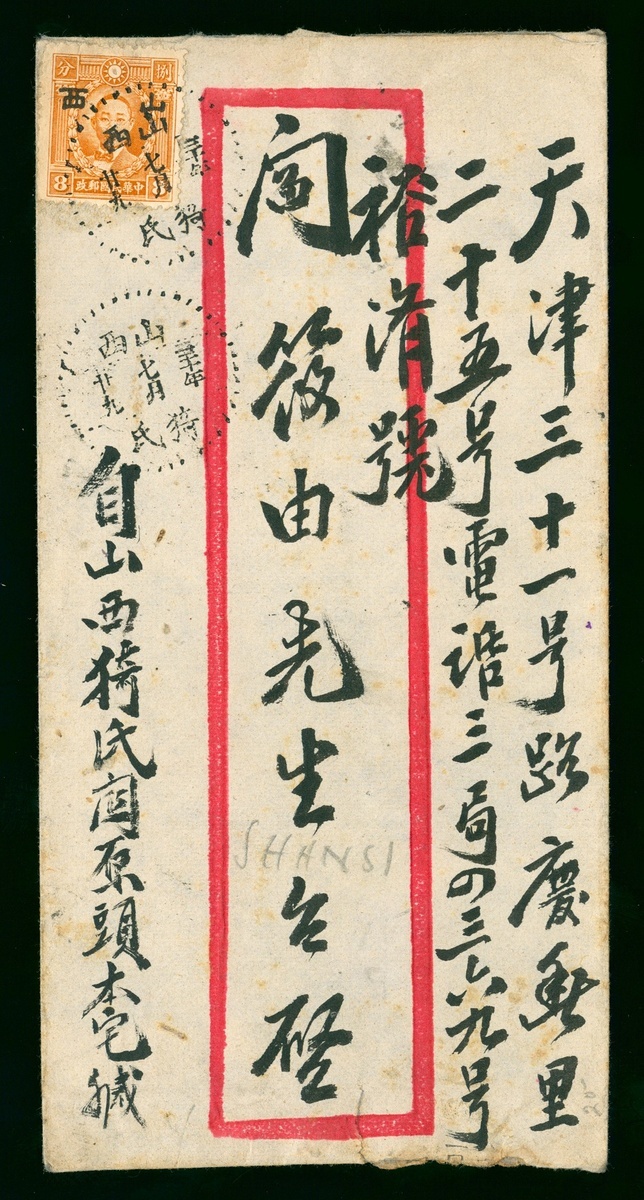 天津三十一号路慶熱里
二十五号電話三局の三六九号
裕済號
阎筱由先生台啓
自山西猗氏阎原頭本宅緘
SHANSI
分 捌
西
8 中華民國郵政
山西 三十年 七月 廿九 猗氏
山西 三十年 七月 廿九 猗氏